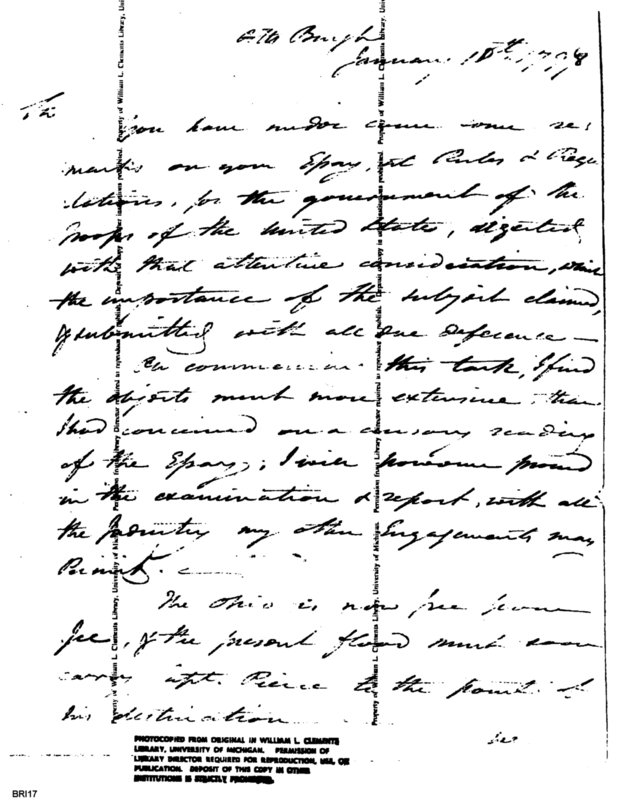 Burgh
January 18th, 1798
you have under some re:
marks on your Essay, at Rules & Regu
lations, for the government of the
Troops of the United States, digested
with that attentive consideration, which
the importance of the subject claimed,
& submitted with all due deference —
On this task, I find
the objects much more extensive than
I had conceived on a cursory reading
of the Essay; I will however proceed
in the examination & report, with all
the Industry my other Engagements may
Permit.
The Ohio is now free from
Ice, & the present flood must soon
carry Capt. Pierce to the point of
his destination
Property of William L. Clements Library, University of Michigan. Permission from Library Director required to reproduce or publish. Deposit of copy in other institutions prohibited.
Property of William L. Clements Library, University of Michigan. Permission from Library Director required to reproduce or publish. Deposit of copy in other institutions prohibited.
PHOTOCOPIED FROM ORIGINAL IN WILLIAM L. CLEMENTS
LIBRARY, UNIVERSITY OF MICHIGAN. PERMISSION OF
LIBRARY DIRECTOR REQUIRED FOR REPRODUCTION, USE, OR
PUBLICATION. DEPOSIT OF THIS COPY IN OTHER
INSTITUTIONS IS STRICTLY PROHIBITED.
BRI17